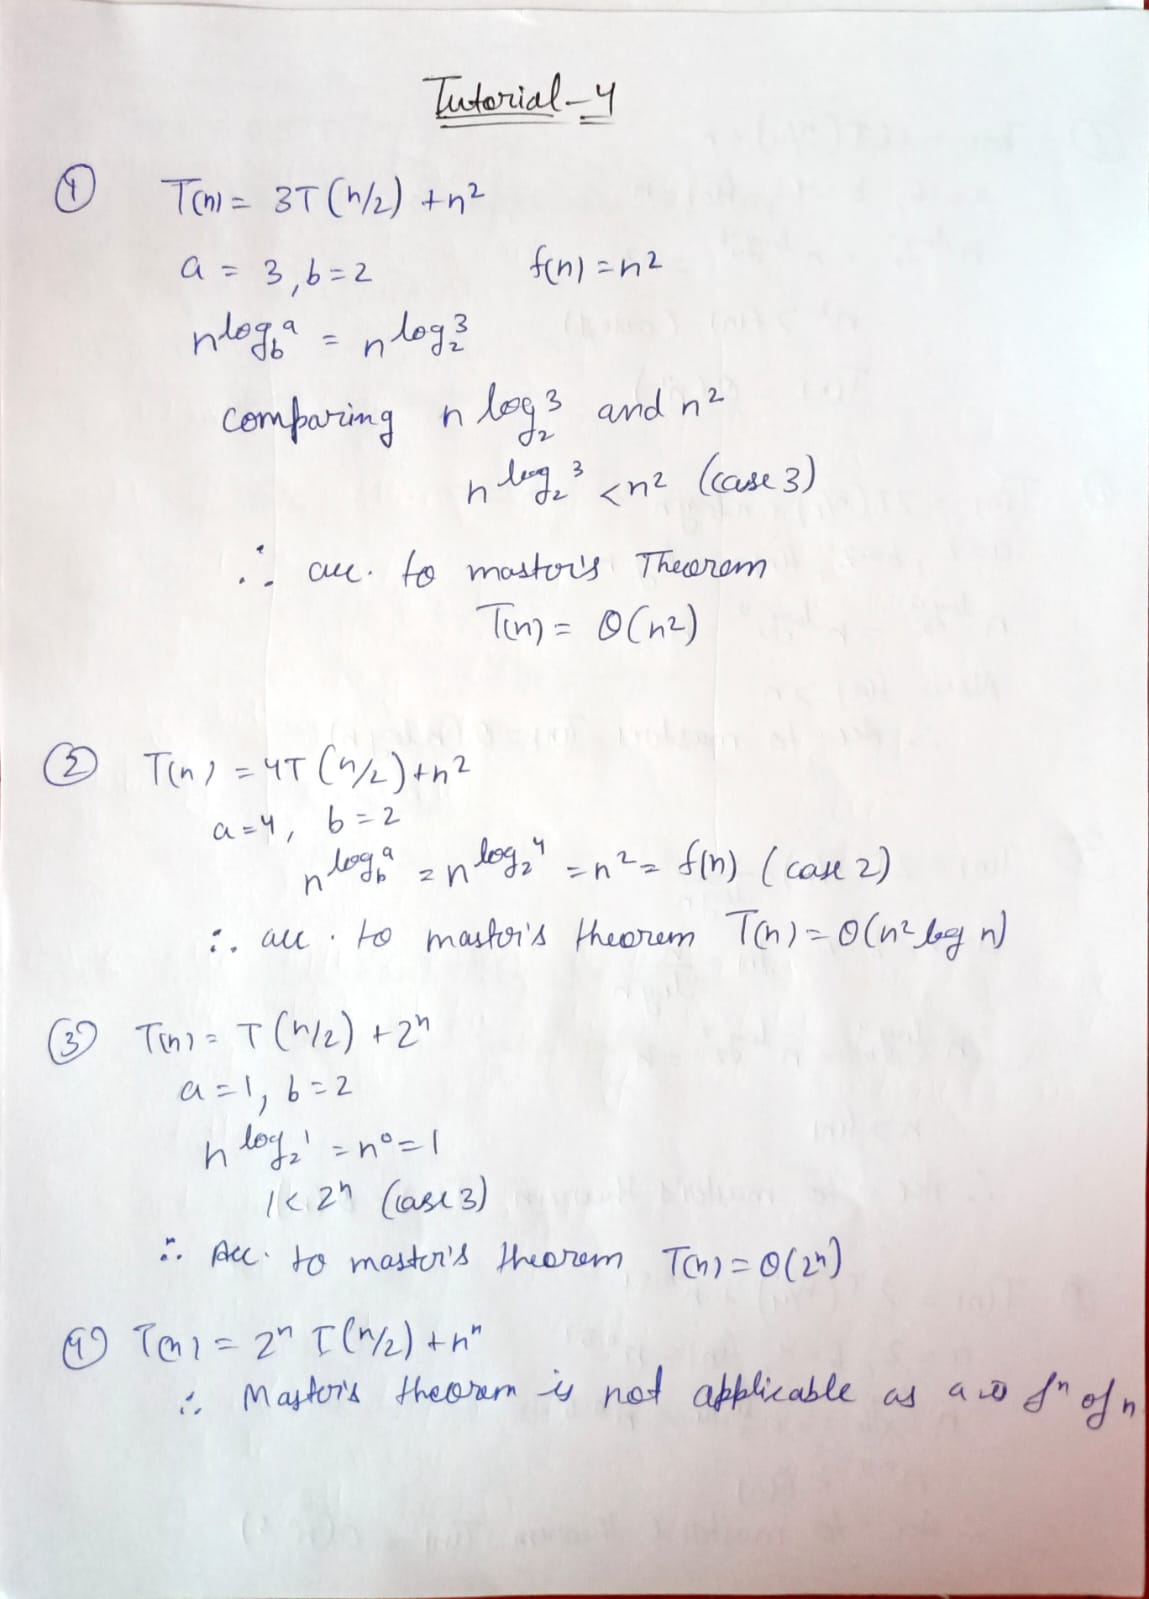 Tutorial-4
① T(n) = 3T(n/2) + n²
a = 3, b = 2 f(n) = n²
n^log_b^a = n^log_2^3
comparing n^log_2^3 and n²
n^log_2^3 < n² (case 3)
∴ acc. to master's Theorem
T(n) = θ(n²)
② T(n) = 4T(n/2) + n²
a = 4, b = 2
n^log_b^a = n^log_2^4 = n² = f(n) (case 2)
∴ acc. to master's theorem T(n) = θ(n² log n)
③ T(n) = T(n/2) + 2ⁿ
a = 1, b = 2
n^log_2^1 = n⁰ = 1
1 < 2ⁿ (case 3)
∴ Acc. to master's theorem T(n) = θ(2ⁿ)
④ T(n) = 2ⁿ T(n/2) + nⁿ
∴ Master's theorem is not applicable as a is fⁿ of n